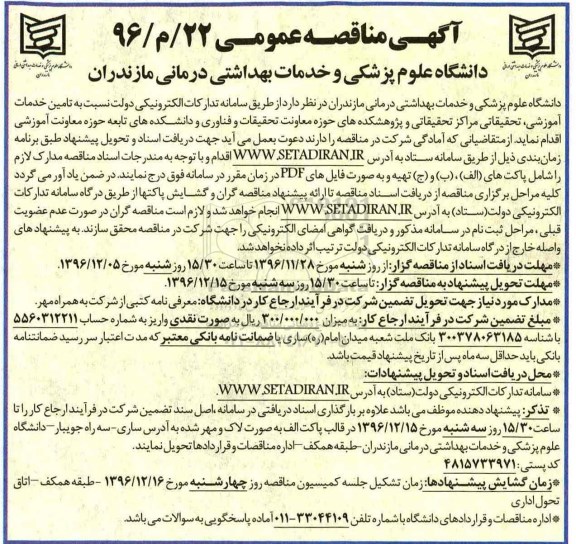 آگهی مناقصه عمومی ۲۲/م/۹۶
دانشگاه علوم پزشکی و خدمات بهداشتی درمانی مازندران
دانشگاه علوم پزشکی و خدمات بهداشتی درمانی مازندران در نظر دارد از طریق سامانه تدارکات الکترونیکی دولت نسبت به تامین خدمات
آموزشی، تحقیقاتی مراکز تحقیقاتی و پژوهشکده های حوزه معاونت تحقیقات و فناوری و دانشکده های تابعه حوزه معاونت آموزشی
اقدام نماید. از متقاضیانی که آمادگی شرکت در مناقصه را دارند دعوت بعمل می آید جهت دریافت اسناد و تحویل پیشنهاد طبق برنامه
زمان‌بندی ذیل از طریق سامانه ستاد به آدرس WWW.SETADIRAN.IR اقدام و با توجه به مندرجات اسناد مناقصه مدارک لازم
را شامل پاکت های (الف)، (ب) و (ج) تهیه و به صورت فایل های PDF در زمان مقرر در سامانه فوق درج نمایند. در ضمن یادآور می گردد
کلیه مراحل برگزاری مناقصه از دریافت اسناد مناقصه تا ارائه پیشنهاد مناقصه گران و گشایش پاکتها از طریق درگاه سامانه تدارکات
الکترونیکی دولت(ستاد) به آدرس WWW.SETADIRAN.IR انجام خواهد شد و لازم است مناقصه گران در صورت عدم عضویت
قبلی، مراحل ثبت نام در سامانه مذکور و دریافت گواهی امضای الکترونیکی را جهت شرکت در مناقصه محقق سازند. به پیشنهاد های
واصله خارج از درگاه سامانه تدارکات الکترونیکی دولت ترتیب اثر داده نخواهد شد.
*مهلت دریافت اسناد از مناقصه گزار: از روز شنبه مورخ ۱۳۹۶/۱۱/۲۸ تا ساعت ۱۵/۳۰ روز شنبه مورخ ۱۳۹۶/۱۲/۰۵.
*مهلت تحویل پیشنهاد به مناقصه گزار: تا ساعت ۱۵/۳۰ روز سه شنبه مورخ ۱۳۹۶/۱۲/۱۵.
*مدارک مورد نیاز جهت تحویل تضمین شرکت در فرآیند ارجاع کار در دانشگاه: معرفی نامه کتبی از شرکت به همراه مهر.
*مبلغ تضمین شرکت در فرآیند ارجاع کار: به میزان ۳۰۰/۰۰۰/۰۰۰ ریال به صورت نقدی واریز به شماره حساب ۵۵۶۰۳۱۲۲۱۱
با شناسه ۳۰۰۳۷۸۰۶۳۱۸۵ بانک ملت شعبه میدان امام(ره)ساری یا ضمانت نامه بانکی معتبر که مدت اعتبار سر رسید ضمانتنامه
بانکی باید حداقل سه ماه پس از تاریخ پیشنهاد قیمت باشد.
*محل دریافت اسناد و تحویل پیشنهادات:
*سامانه تدارکات الکترونیکی دولت(ستاد) به آدرس WWW.SETADIRAN.IR.
* تذکر: پیشنهاد دهنده موظف می باشد علاوه بر بارگذاری اسناد دریافتی در سامانه، اصل سند تضمین شرکت در فرآیند ارجاع کار را تا
ساعت ۱۵/۳۰ روز سه شنبه مورخ ۱۳۹۶/۱۲/۱۵ در قالب پاکت الف به صورت لاک و مهر شده به آدرس ساری-سه راه جویبار-دانشگاه
علوم پزشکی و خدمات بهداشتی درمانی مازندران-طبقه همکف-اداره مناقصات و قراردادها تحویل نمایند.
کد پستی: ۴۸۱۵۷۳۳۹۷۱
*زمان گشایش پیشنهادها: زمان تشکیل جلسه کمیسیون مناقصه روز چهارشنبه مورخ ۱۳۹۶/۱۲/۱۶ -طبقه همکف-اتاق
تحول اداری
*اداره مناقصات و قراردادهای دانشگاه با شماره تلفن ۳۳۰۴۴۱۰۹-۰۱۱ آماده پاسخگویی به سوالات می باشد.